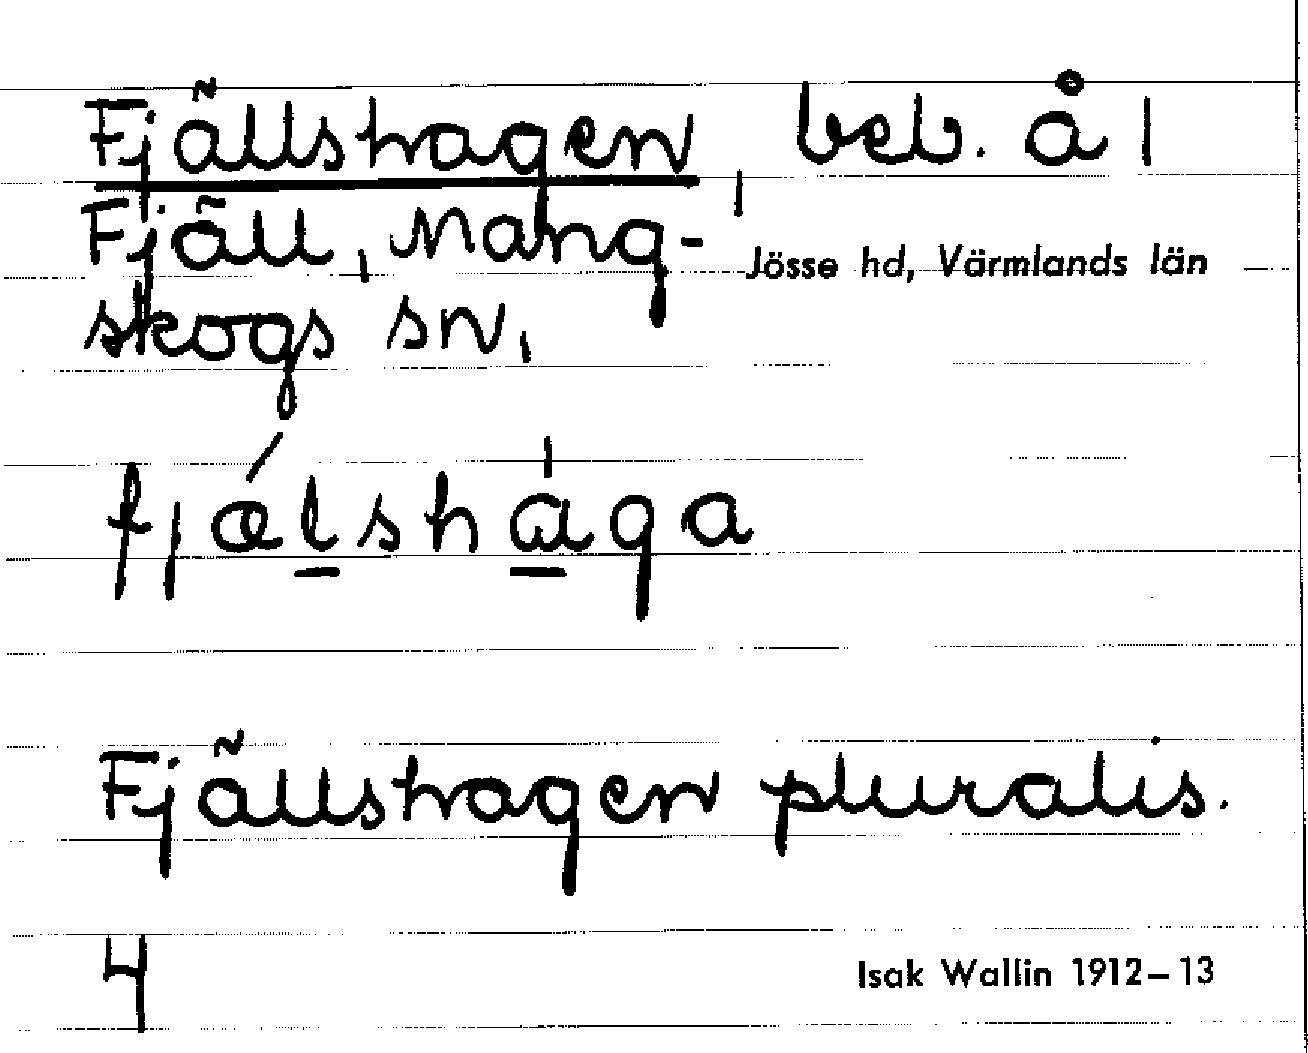 Fjällshagen, beb. å 1
Fjäll, Mang-
Jösse hd, Värmlands län
skogs sn,
fjæ´lsha`ga
Fjällshagen pluralis.
4
Isak Wallin 1912–13